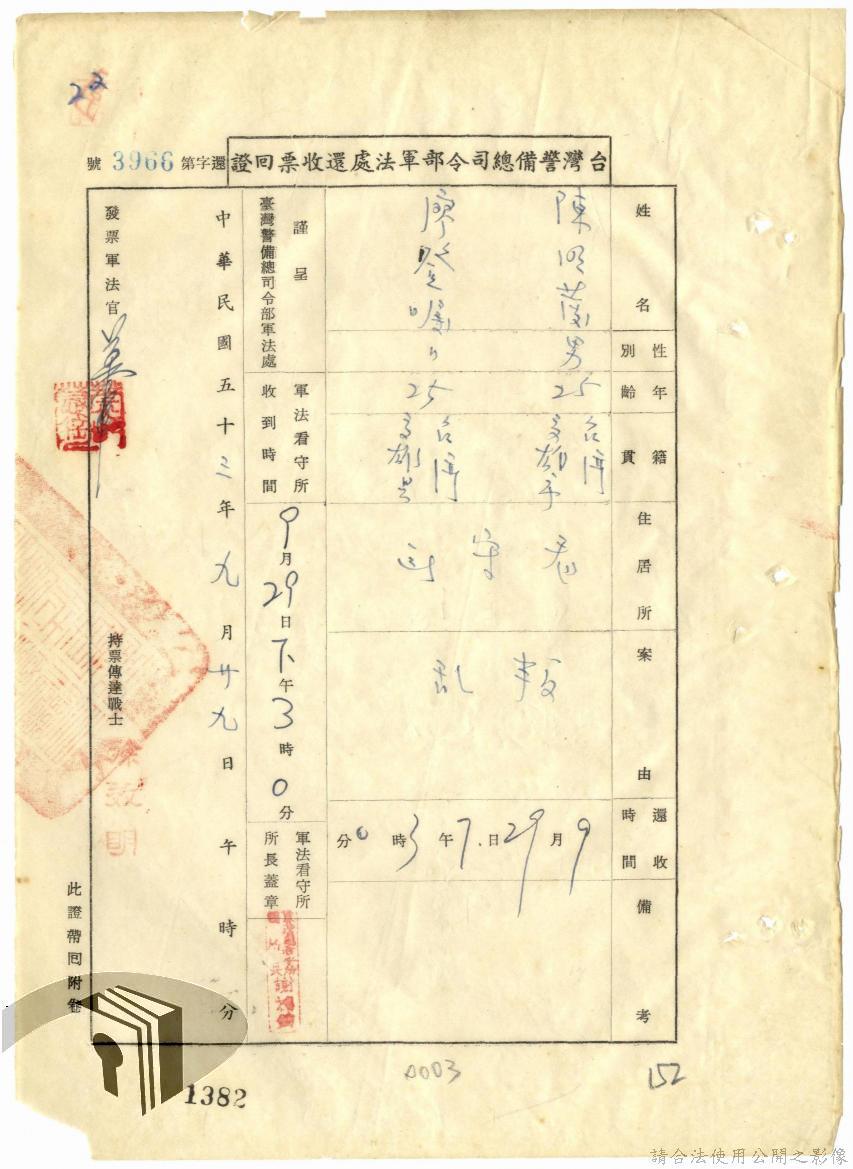 台灣警備總司令部軍法處還收票回證
還字第 3966 號
姓名
陳明發
廖登囑
性別
男
〃
年齡
25
25
籍貫
台灣
高雄市
台灣
高雄县
住居所
看守所
案由
叛乱
還收時間
9月29日下午3時0分
備考
謹呈
臺灣警備總司令部軍法處
軍法看守所
收到時間
9月29日下午3時0分
軍法看守所
所長蓋章
中華民國五十三年九月廿九日午時分
發票軍法官
持票傳達戰士
此證帶回附卷
1382
0003
152
請合法使用公開之影像